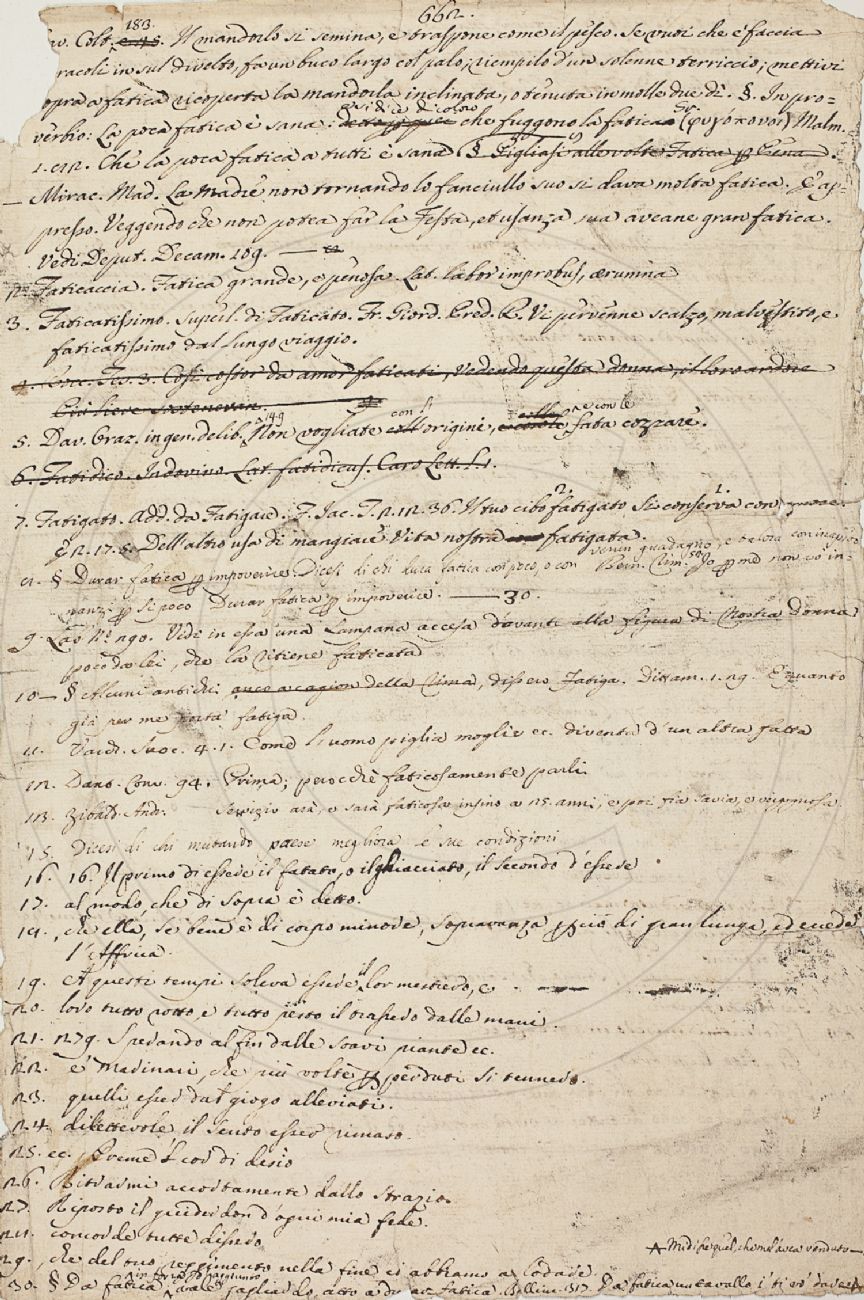 662.
183.
Dav. Colt. e 78. Il mandorlo si semina, e traspone come il pesco. Se vuoi che e' faccia
racoli in sul divelto, fa un buco largo col palo; riempilo d'un solenne terriccio; mettivi
sopra a fatica ricoperta la mandorla inclinata, e tenuta in molle due dì. §. In pro-
verbio: La poca fatica è sana: qui si dice di coloro che fuggono la fatica (φυγόπονοι) Malm.
1. e 12. Chè la poca fatica a tutti è sana (§ Pigliasi alle volte Fatica p Cura.
— Mirac. Mad. La Madre non tornando lo fanciullo suo si dava molta fatica. E ap-
presso. Veggendo che non potea far la festa, et usanza sua aveane gran fatica.
Vedi Deput. Decam. 109. —
2. Faticaccia. Fatica grande, e penosa. Lat. labor improbus, ærumna
3. Faticatissimo. Superl. di Faticato. Fr. Giord. Pred. R. Vi pervenne scalzo, malvestito, e
faticatissimo dal lungo viaggio.
4. Bocc. Tes. 3. Così costor da amor faticati, Vedendo questa donna, il loro ardore
Più lieve sostenevan.
5. Dav. Oraz. in gen. delib. 149 Non vogliate con l' origini, e con le fata cozzare.
6. Fatidico. Indovino. Lat. fatidicus. Caro Lett. 1.
7. Fatigato. Add. da Fatigare. F. Jac. T. 2. 12. 36. Il tuo cibo fatigato Si conserva con
E 2. 17. 5. Dell'altro usa di mangiare Vita nostra fatigata.
8. § Durar fatica p impoverire. Dicesi di chi dura fatica con poco, o con verun guadagno, e talora con iscapito
Bern. Rim. 50. Io p me non vo' in-
nanzi p sì poco Durar fatica p impoverire. — 30.
9. Vide in essa una Lampana accesa davante alla figura di Nostra Donna:
poco da lei, che la ritiene faticata
10 — § Alcuni antichi, anco a cagion della Rima, dissero Fatiga. Dittam. 1. 29. E quanto
già per me porta' fatiga.
11. Varch. Suoc. 4. 1. Come l'uomo piglia moglie ec. diventa d'un altra fatta
12. Dant. Conv. 94. Prima; perocchè faticosamente parli
13. Zibald. And. Servizio arà, e sarà faticosa insino a 25. anni, e poi fia savia, e vergognosa
15. Dicesi di chi mutando paese megliora le sue condizioni
16. 16. Il primo di essere il fatato, o il ghiacciato, il secondo d'essere
17. al modo, che di sopra è detto.
18. , che ella, se bene è di corpo minore, sopravanza p ciò di gran lunga, ed eccede
l'Affrica.
19. A questi tempi soleva essere il lor mestiero, e
20. loro tutto rotto, e tutto pesto il trassero dalle mani.
21. 279. Sperando al fin dalle soavi piante ec.
22. e' Marinari, che più volte p perduti si tennero.
23. quelli esser dal giogo alleviati.
24. dilettevole il sento esser rimaso.
25. ec. , Preme 'l cor di desio
26. Ritrarmi accortamente dallo strazio.
27. Riposto il guiderdon d'ogni mia fede.
28. concorde tutte dissero
29. , che del tuo reggimento nella fine ci abbiamo a lodare.
30. § Da fatica vale gagliardo, atto a durar fatica. Bellin. 317. Da fatica un cavallo i' ti vo' dare